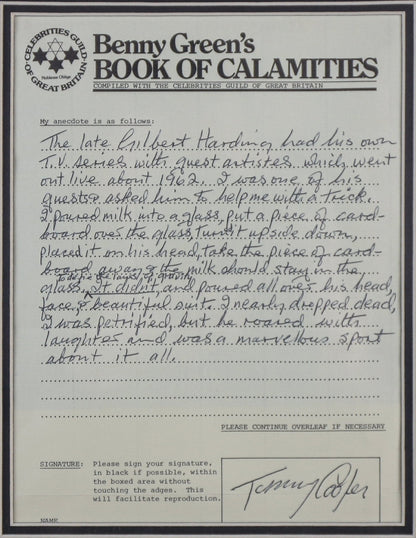 CELEBRITIES GUILD
OF GREAT BRITAIN
Noblesse Oblige
Benny Green's
BOOK OF CALAMITIES
COMPILED WITH THE CELEBRITIES GUILD OF GREAT BRITAIN
My anecdote is as follows:
The late Gilbert Harding had his own
T.V. series with guest artistes which went
out live about 1962. I was one of his
guests & asked him to help me with a trick.
I poured milk into a glass, put a piece of card-
board over the glass, turn it upside down,
placed it on his head, take the piece of card-
board away & the milk should stay in the
glass. It didnt, and poured all over his head,
face, & beautiful suit. I nearly dropped dead,
I was petrified, but he roared with
laughter and was a marvellous sport
about it all.
PLEASE CONTINUE OVERLEAF IF NECESSARY
SIGNATURE: Please sign your signature,
in black if possible, within
the boxed area without
touching the adges. This
will facilitate reproduction.
Tommy Cooper
NAME